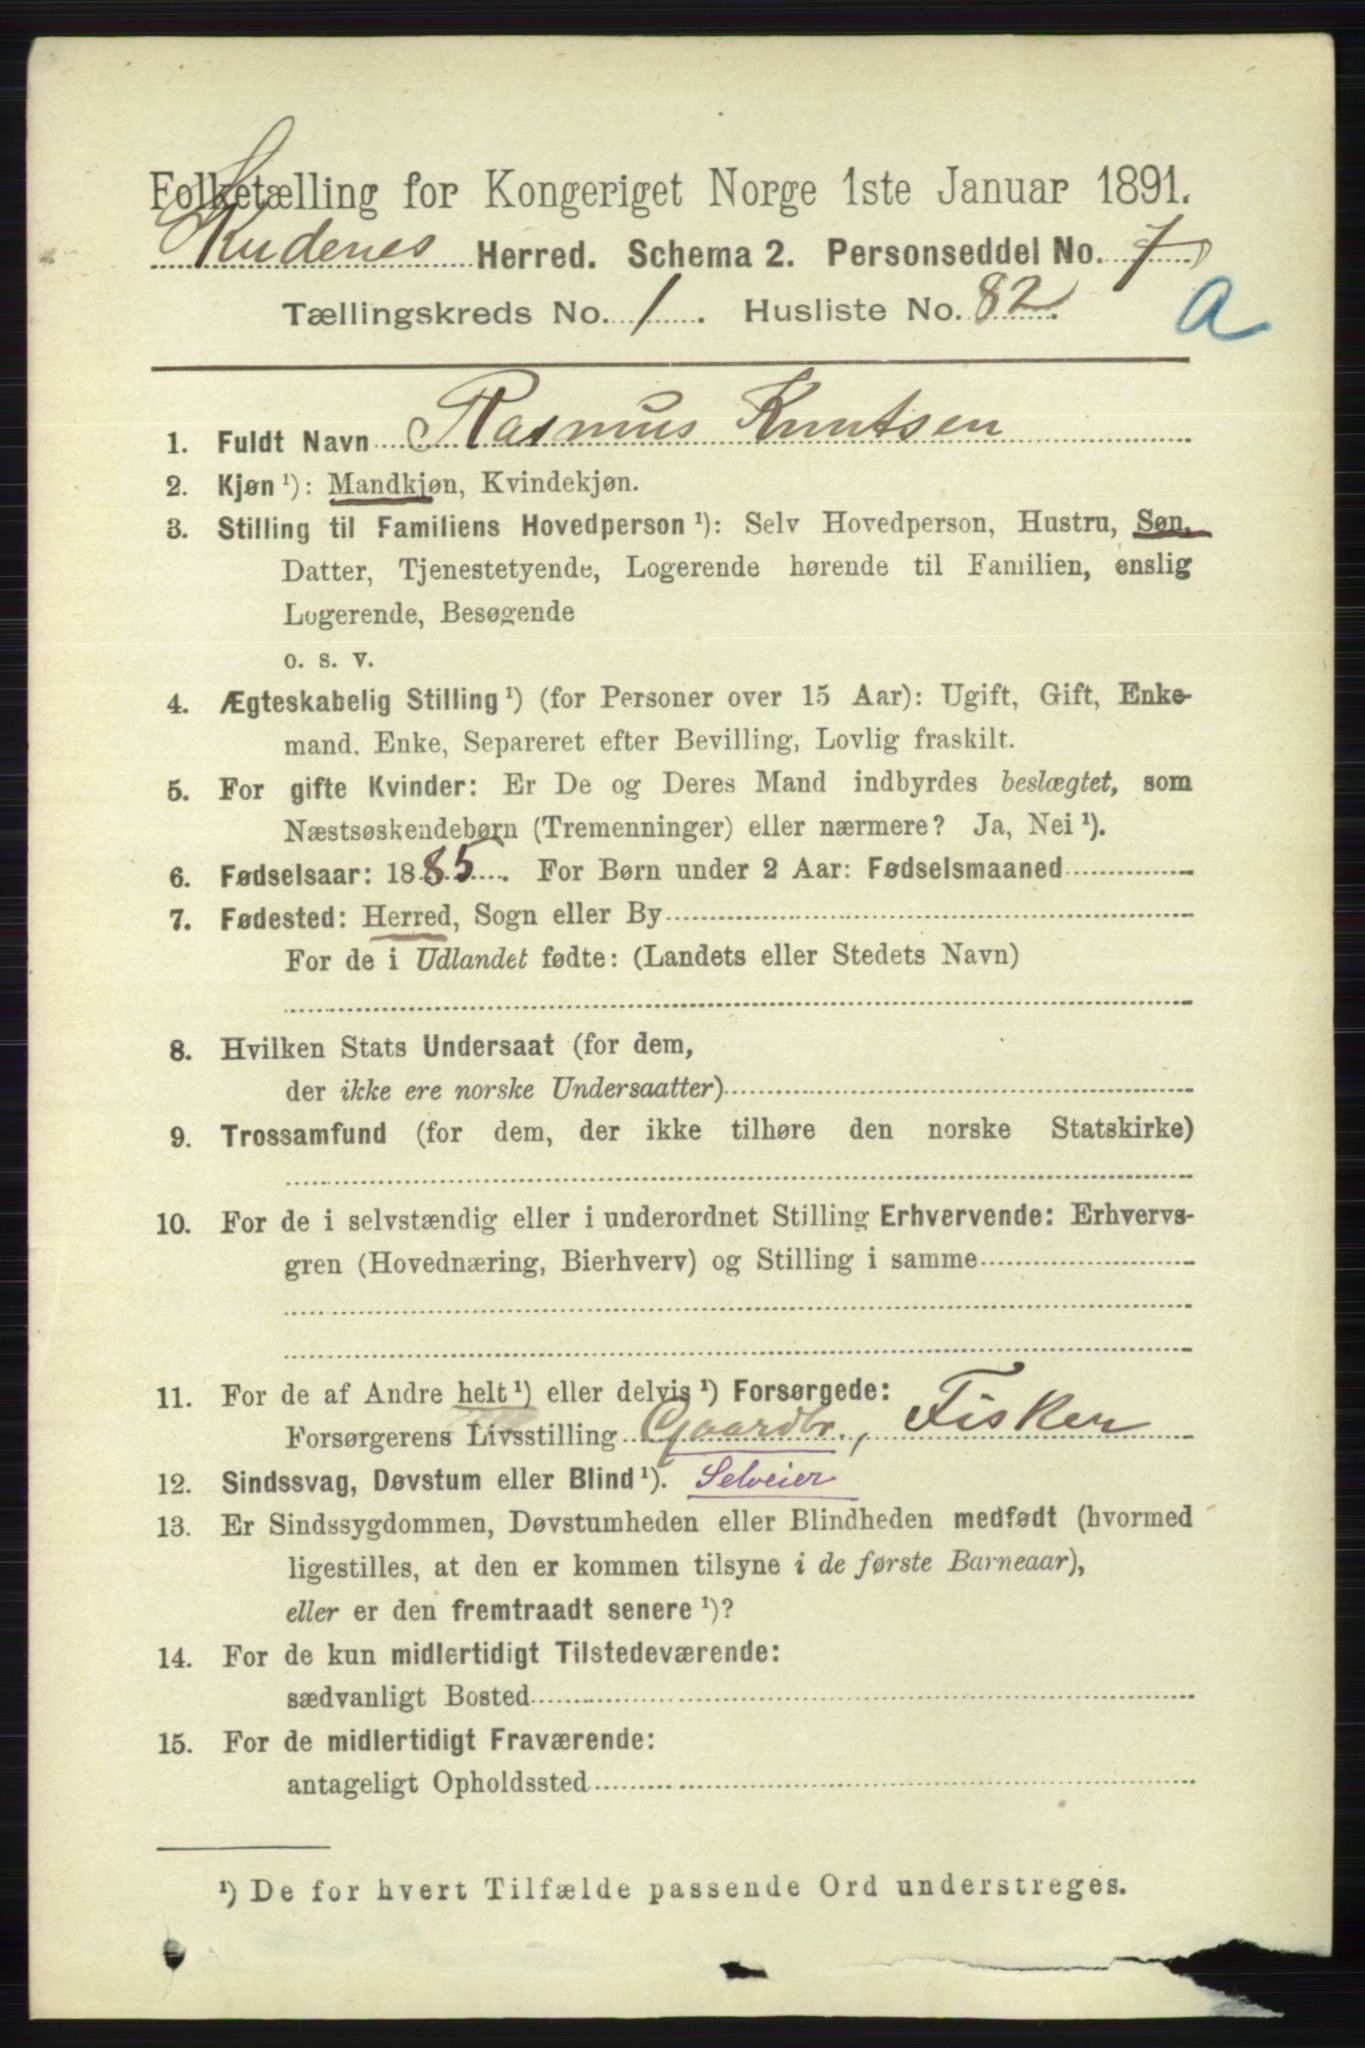 Folketælling for Kongeriget Norge 1ste Januar 1891.
Skudenes Herred. Schema 2. Personseddel No. 7
Tællingskreds No. 1. Husliste No. 82.
a
1. Fuldt Navn Rasmus Knutsen
2. Kjøn ¹): Mandkjøn, Kvindekjøn.
3. Stilling til Familiens Hovedperson ¹): Selv Hovedperson, Hustru, Søn,
Datter, Tjenestetyende, Logerende hørende til Familien, enslig
Logerende, Besøgende
o. s. v.
4. Ægteskabelig Stilling ¹) (for Personer over 15 Aar): Ugift, Gift, Enke-
mand. Enke, Separeret efter Bevilling, Lovlig fraskilt.
5. For gifte Kvinder: Er De og Deres Mand indbyrdes beslægtet, som
Næstsøskendebørn (Tremenninger) eller nærmere? Ja, Nei ¹).
6. Fødselsaar: 1885. For Børn under 2 Aar: Fødselsmaaned
7. Fødested: Herred, Sogn eller By
For de i Udlandet fødte: (Landets eller Stedets Navn)
8. Hvilken Stats Undersaat (for dem,
der ikke ere norske Undersaatter)
9. Trossamfund (for dem, der ikke tilhøre den norske Statskirke)
10. For de i selvstændig eller i underordnet Stilling Erhvervende: Erhvervs-
gren (Hovednæring, Bierhverv) og Stilling i samme
11. For de af Andre helt ¹) eller delvis ¹) Forsørgede:
Forsørgerens Livsstilling Gaardbr., Fisker
12. Sindssvag, Døvstum eller Blind ¹). Selveier
13. Er Sindssygdommen, Døvstumheden eller Blindheden medfødt (hvormed
ligestilles, at den er kommen tilsyne i de første Barneaar),
eller er den fremtraadt senere ¹)?
14. For de kun midlertidigt Tilstedeværende:
sædvanligt Bosted
15. For de midlertidigt Fraværende:
antageligt Opholdssted
¹) De for hvert Tilfælde passende Ord understreges.